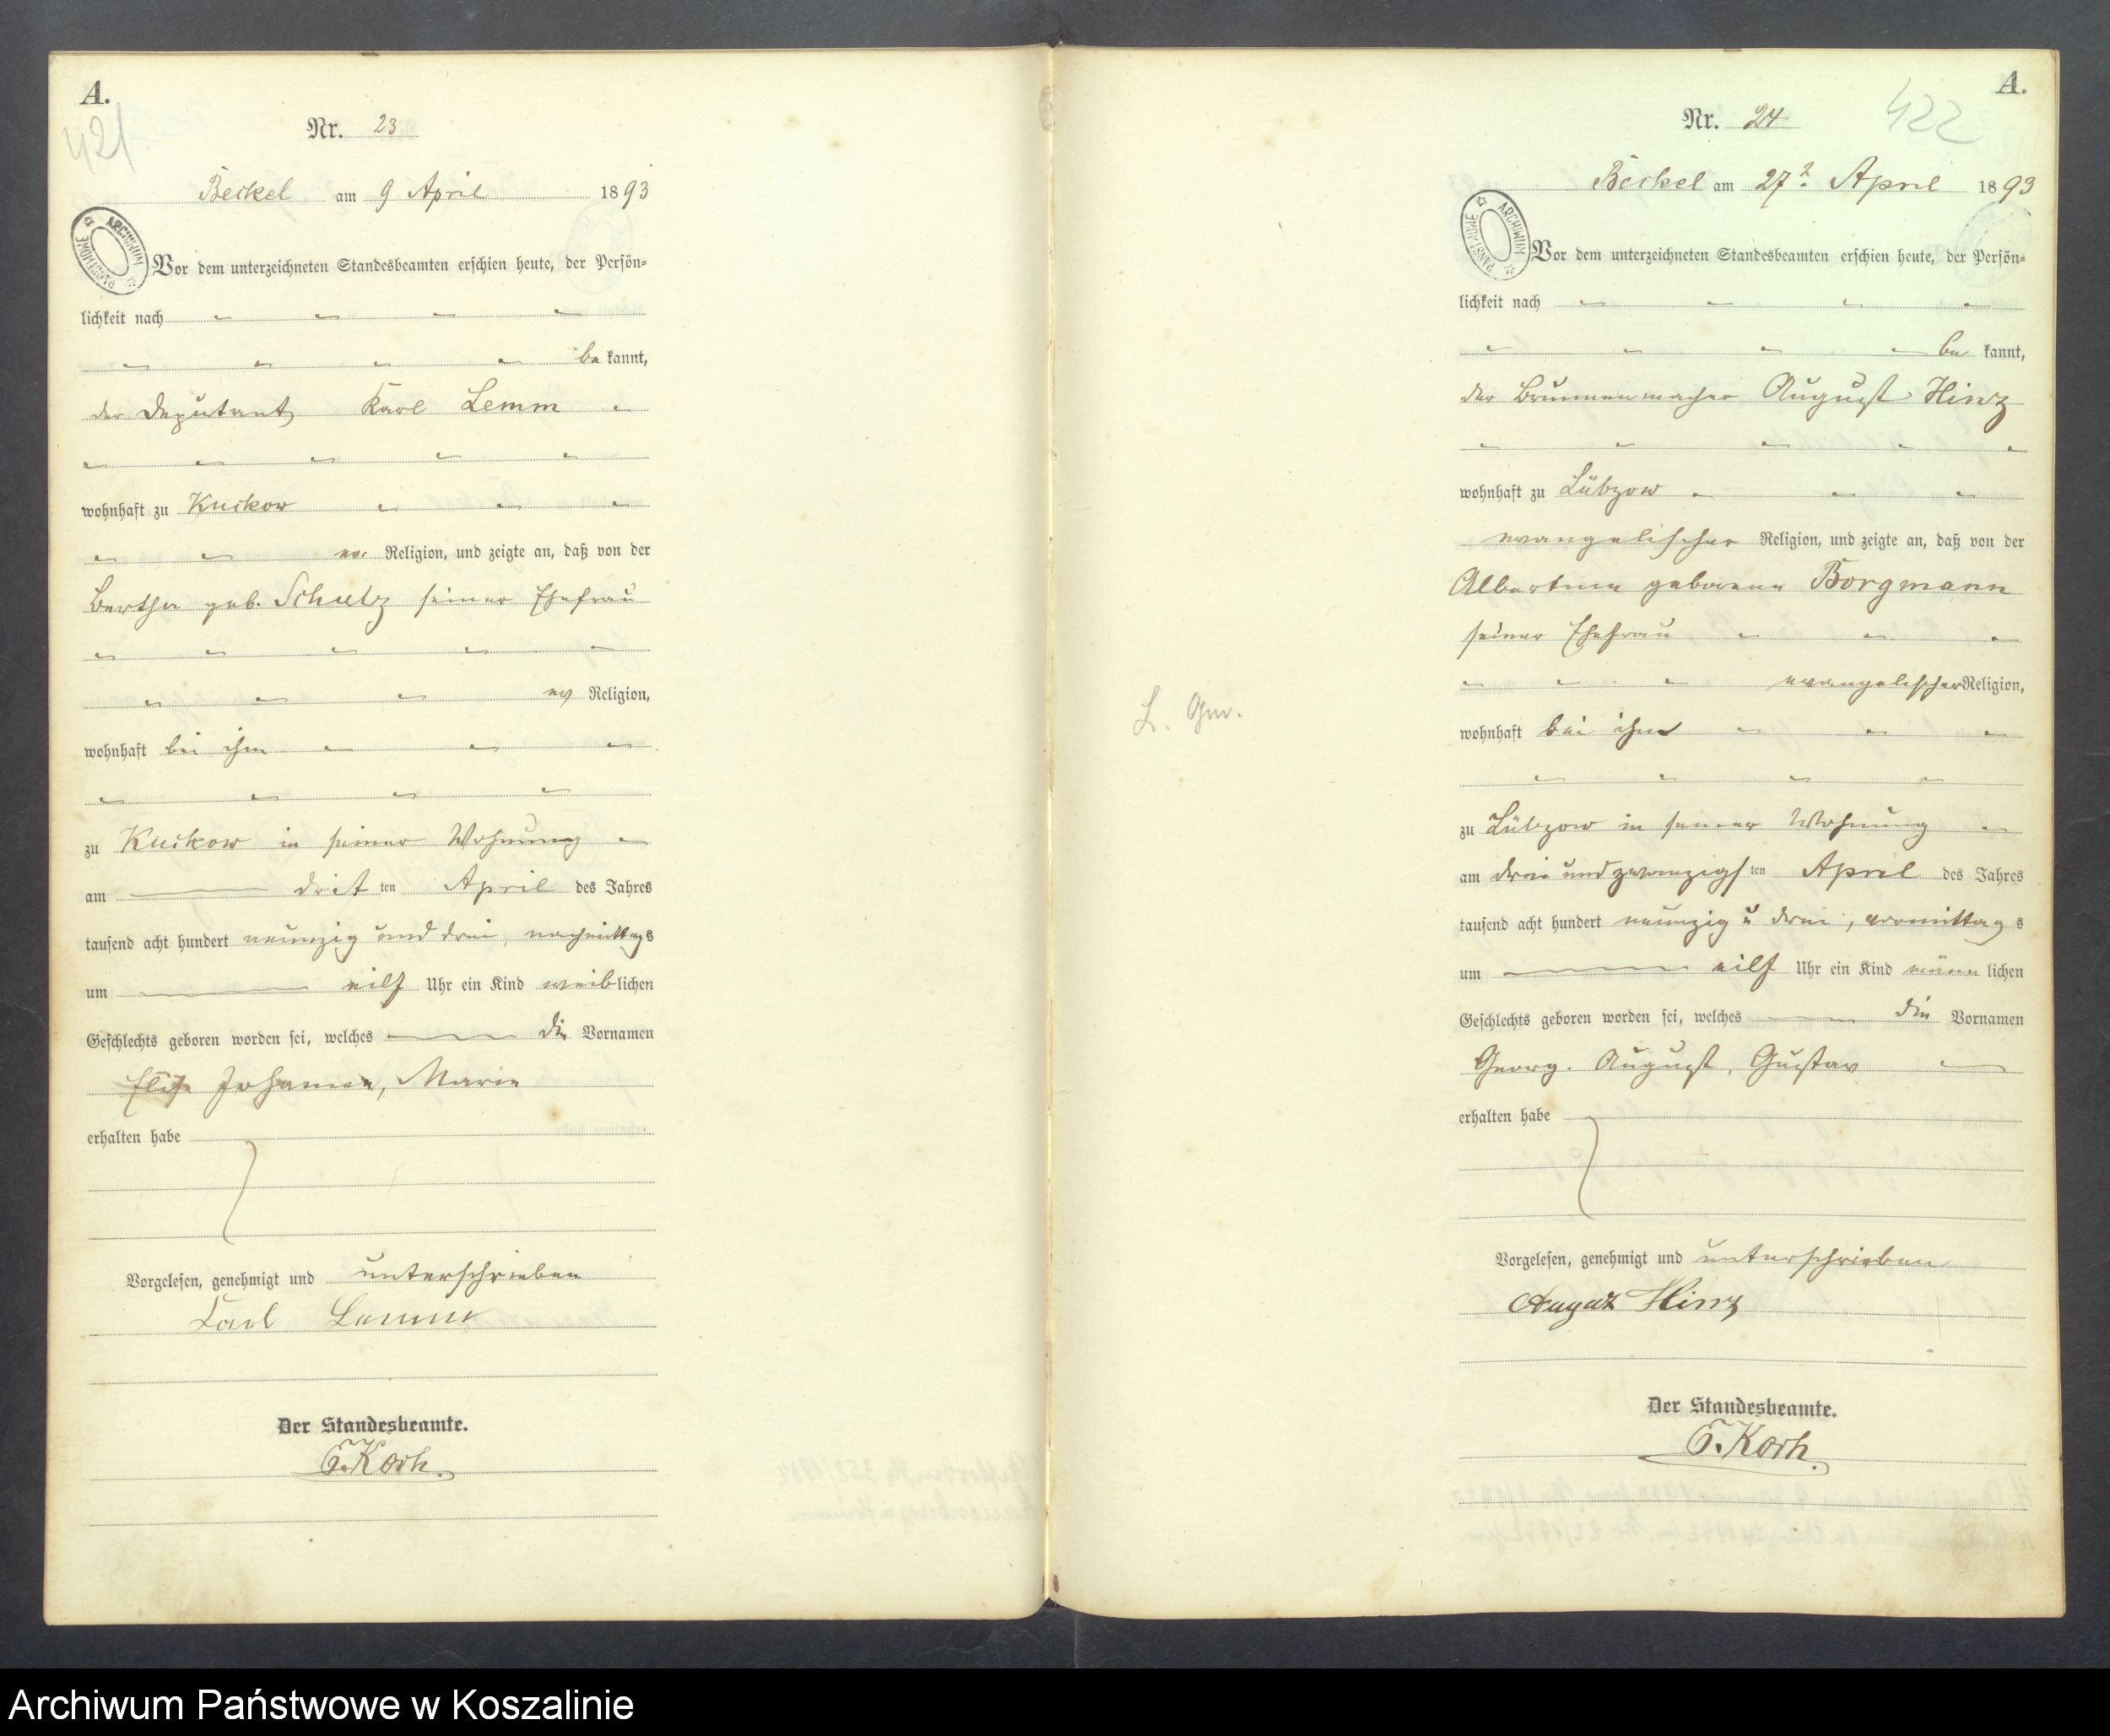 A.
421
Nr. 23
Beckel am 9 April 1893
ARCHIWUM PAŃSTWOWE
Vor dem unterzeichneten Standesbeamten erschien heute, der Persön-
lichkeit nach
be kannt,
der Deputant Karl Lemm
wohnhaft zu Kuckow
ev. Religion, und zeigte an, daß von der
Bertha geb. Schulz seiner Ehefrau
ev Religion,
wohnhaft bei ihm
zu Kuckow in seiner Wohnung
am drit ten April des Jahres
tausend acht hundert neunzig und drei, nachmittags
um eilf Uhr ein Kind weiblichen
Geschlechts geboren worden sei, welches die Vornamen
Elise Johanna, Marie
erhalten habe
Vorgelesen, genehmigt und unterschrieben
Karl Lemm
Der Standesbeamte.
Koch.
A.
422
Nr. 24
Beckel am 27 April 1893
ARCHIWUM PAŃSTWOWE
Vor dem unterzeichneten Standesbeamten erschien heute, der Persön-
lichkeit nach
be kannt,
der Brunnenmacher August Hinz
wohnhaft zu Lübzow
evangelischer Religion, und zeigte an, daß von der
Albertine geborene Borgmann
seiner Ehefrau
evangelischer Religion,
wohnhaft bei ihm
zu Lübzow in seiner Wohnung
am drei und zwanzigs ten April des Jahres
tausend acht hundert neunzig u drei, vormittags
um eilf Uhr ein Kind männ lichen
Geschlechts geboren worden sei, welches die Vornamen
Georg. August, Gustav
erhalten habe
Vorgelesen, genehmigt und unterschrieben
August Hinz
Der Standesbeamte.
Koch.
Archiwum Państwowe w Koszalinie